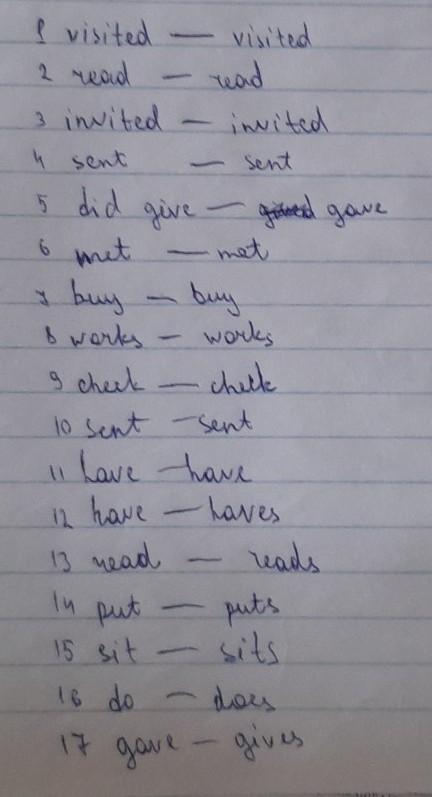 1 visited — visited
2 read — read
3 invited — invited
4 sent — sent
5 did give — gave
6 met — met
7 buy — buy
8 works — works
9 check — check
10 sent — sent
11 have — have
12 have — haves
13 read — reads
14 put — puts
15 sit — sits
16 do — does
17 gave — gives